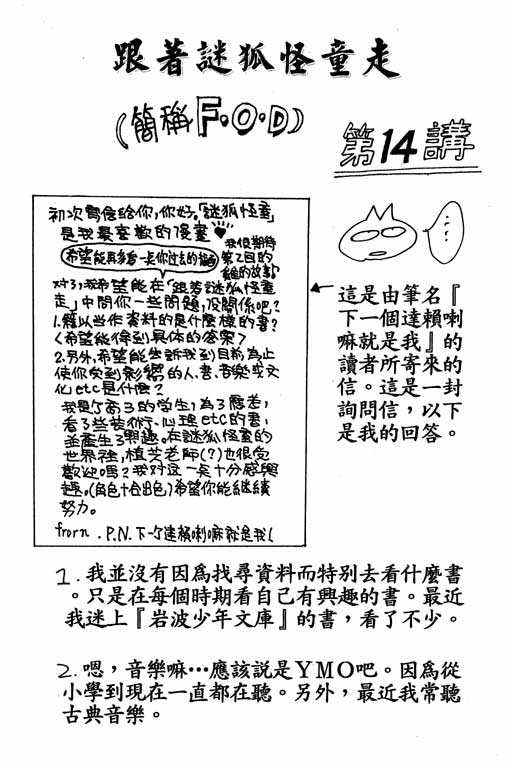 跟著謎狐怪童走
(簡稱F·O·D)
第14講
初次寫信給你,你好,「謎狐怪童」
是我最喜歡的漫畫
希望能再多看一点你过去的插画
我很期待
第2回的
後的故事
对了,我希望能在「跟著謎狐怪童
走」中問你一些問題,沒關係吧?
1.賴以当作資料的是什麼樣的書?
(希望能得到具体的答案)
2.另外,希望能告訴我到目前為止
使你受到影響的人、書、音樂或文
化etc是什麼?
我是高3的学生,為了應考,
看了些藝術、心理etc的書,
並產生了興趣。在謎狐怪童的
世界裡,植芝老師(?)也很受
歡迎嗎?我对这一点十分感興
趣。(角色十分出色)希望你能継續
努力。
from .P.N.下一个達賴喇嘛就是我!
這是由筆名『
下一個達賴喇
嘛就是我』的
讀者所寄來的
信。這是一封
詢問信,以下
是我的回答。
1.我並沒有因為找尋資料而特別去看什麼書
。只是在每個時期看自己有興趣的書。最近
我迷上『岩波少年文庫』的書,看了不少。
2.嗯,音樂嘛…應該說是YMO吧。因為從
小學到現在一直都在聽。另外,最近我常聽
古典音樂。